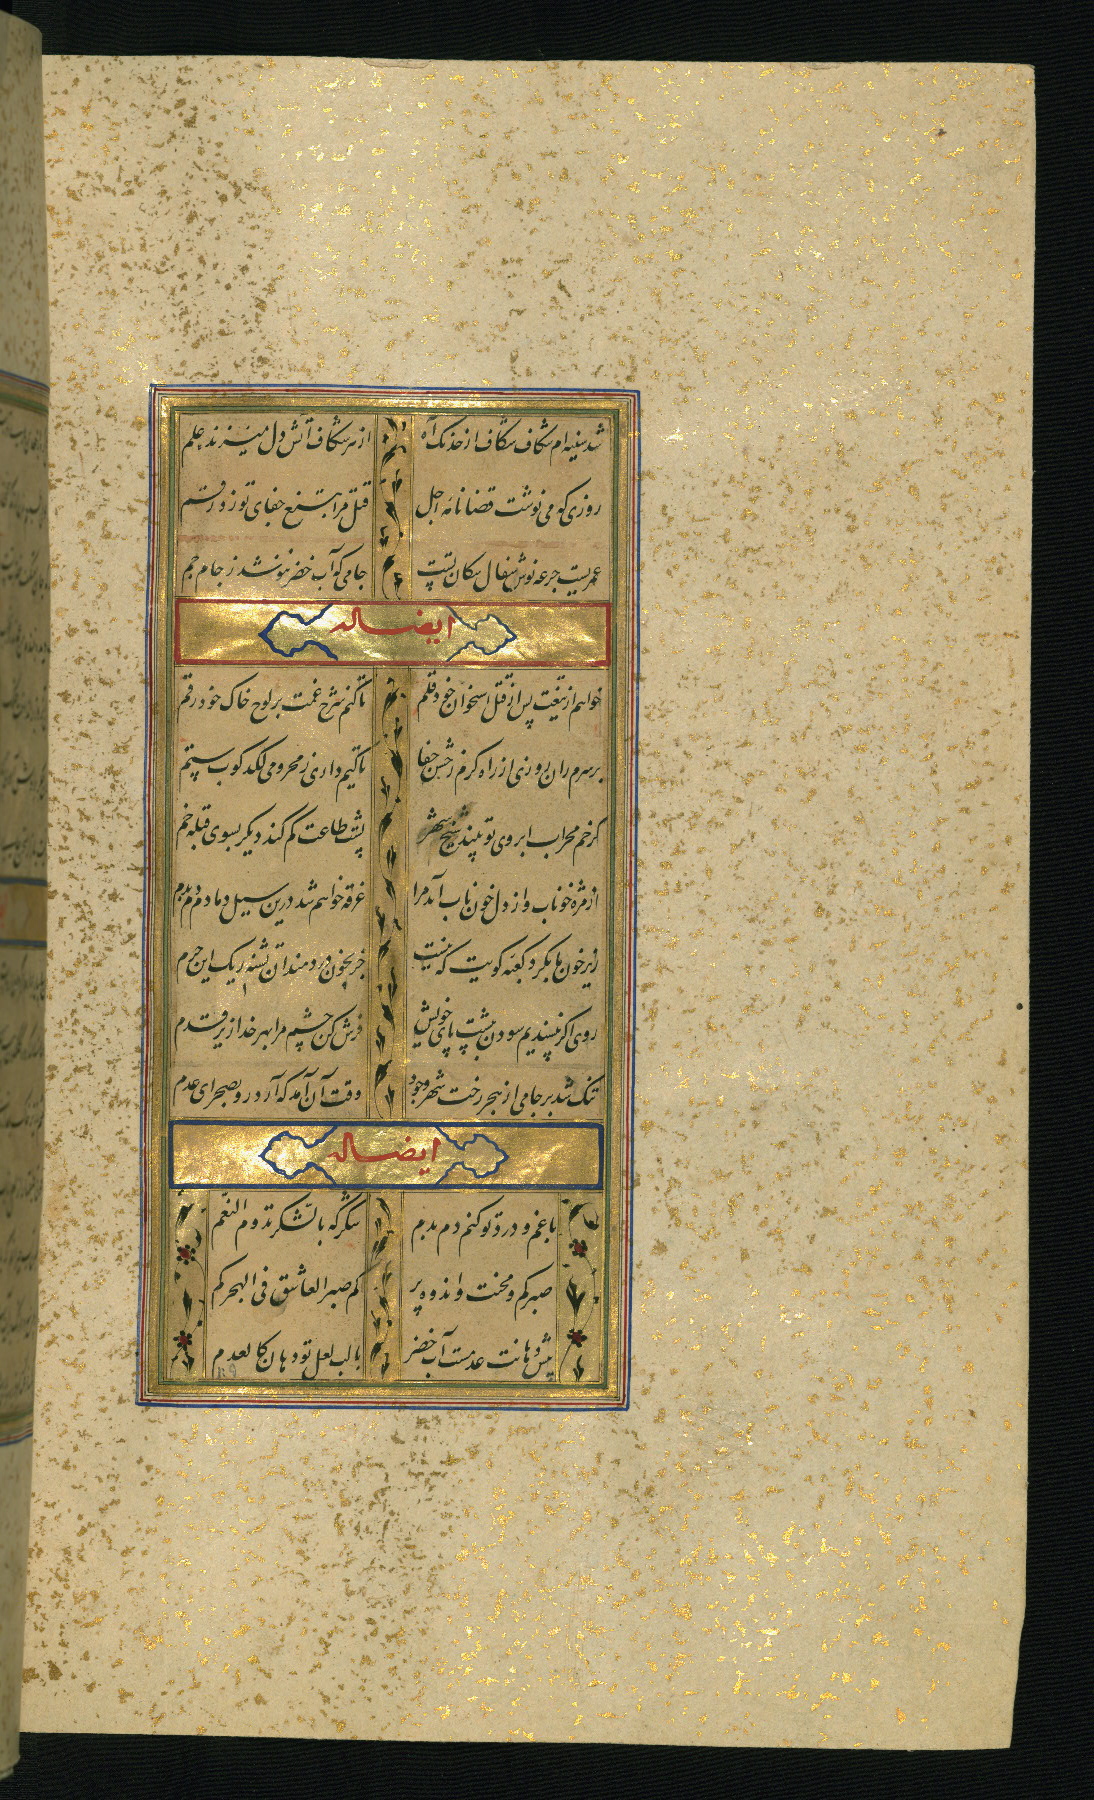 شد سینه‌ام شکاف شکاف از خدنک آه
از هر شکاف آتش دل میزند علم
روزی که می نوشت قضا نامه اجل
قتل مرا بتیغ جفای تو زد رقم
عمریست جرعه نوش سفال سکان تست
جامی که آب خضر ننوشد ز جام جم
ایضا له
خواهم از تیغت پس از قتل استخوان خود قلم
تا کنم شرح غمت بر لوح خاک خود رقم
بر سرم ران روزی از راه کرم رخش جفا
تا کیم داری ز محرومی لکدکوب ستم
کر خم محراب ابروی تو بیند شیخ شهر
پشت طاعت کم کند دیکر بسوی قبله خم
از مژه خوناب و از دل خون ناب آمد مرا
غرقه خواهم شد درین سیل دمادم دم بدم
ریز خون ما بکرد کعبه کویت که نیست
جز بخون دردمندان تشنه ریک این حرم
روی اکر نپسندیم سودن بپشت پای خویش
فرش کن چشم مرا بهر خدا زیر قدم
تنک شد بر جامی از هجر رخت شهر وجود
وقت آن آمد که آرد رو بصحرای عدم
ایضا له
با غم و درد تو کنم دم بدم
شکر که بالشکر تدوم النعم
صبر کم و محنت و اندوه پر
کم صبر العاشق فی الهجر کم
پیش دهانت عدمست آب خضر
با لب لعل تو دهان کالعدم